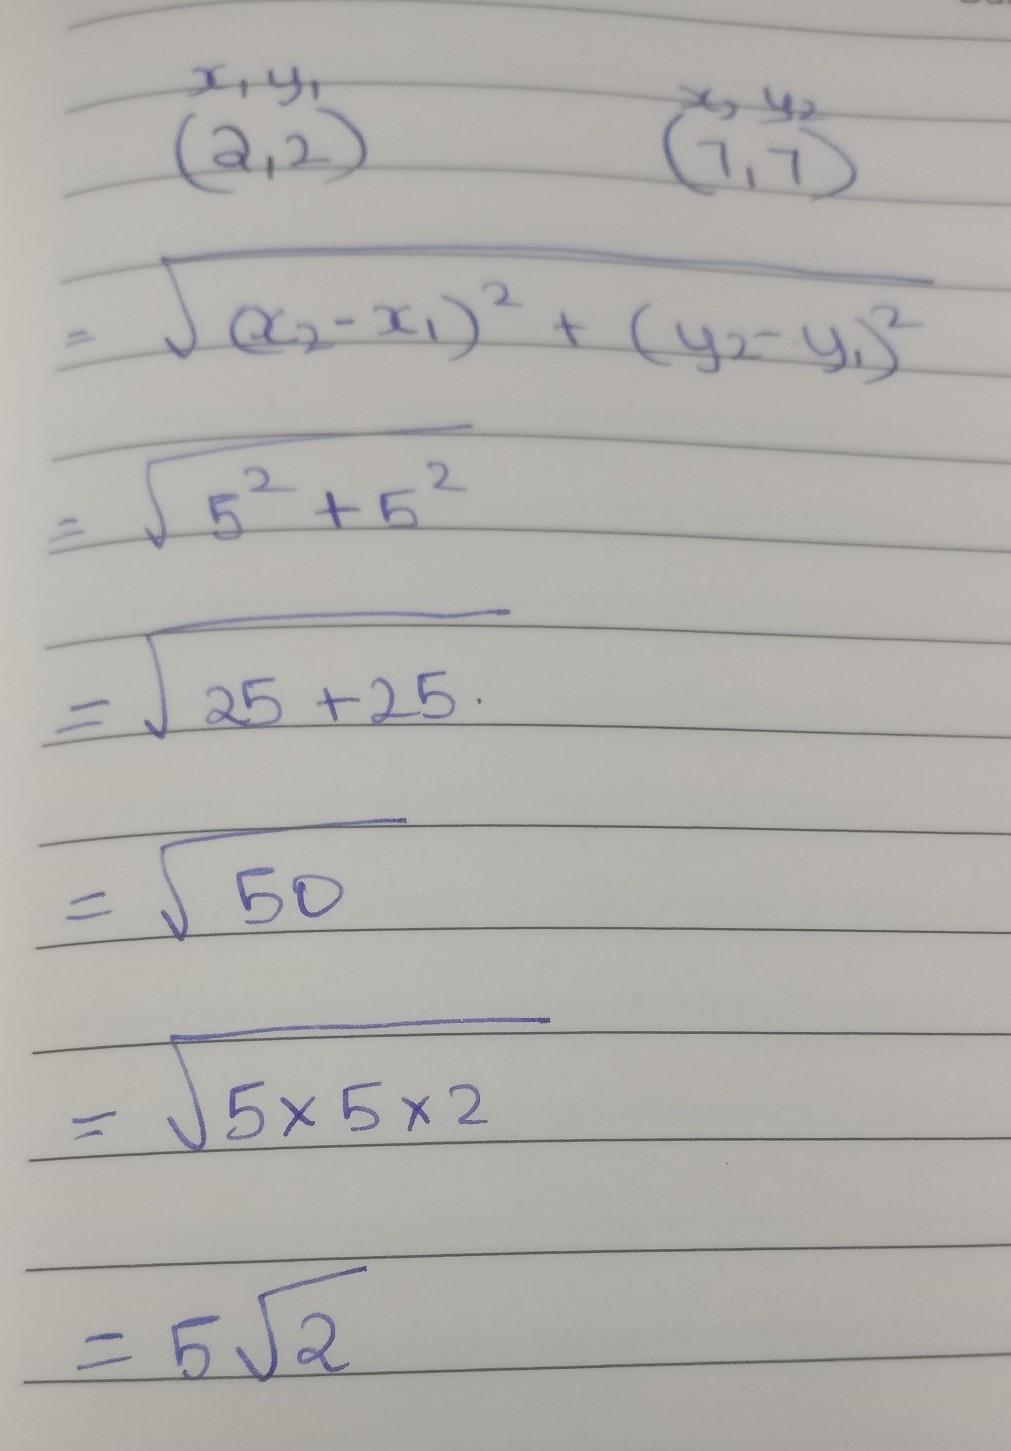 x₁ y₁ x₂ y₂
(2,2) (7,7)
= √(x₂-x₁)² + (y₂-y₁)²
= √5² + 5²
= √25 + 25.
= √50
= √5 × 5 × 2
= 5√2